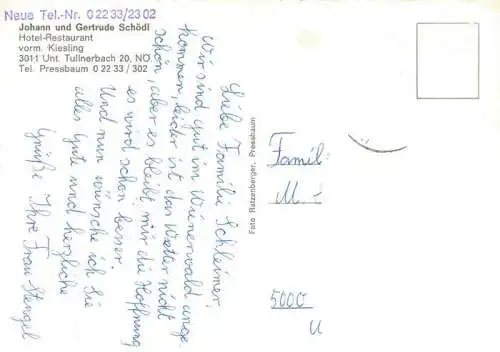 Neue Tel.-Nr. 0 22 33/23 02
Johann und Gertrude Schödl
Hotel-Restaurant
vorm. Kiesling
3011 Unt. Tullnerbach 20, NÖ.
Tel. Pressbaum 0 22 33 / 302
Liebe Familie Schleimer!
Wir sind gut im Wienerwald ange-
kommen, leider ist das Wetter nicht
schön, aber es bleibt mir die Hoffnung
es wird schon besser.
Und nun wünsche ich Sie
alles Gute und herzliche
Grüße Ihre Frau Stengel
Foto Ratzenberger, Pressbaum
Famili.
M
5000